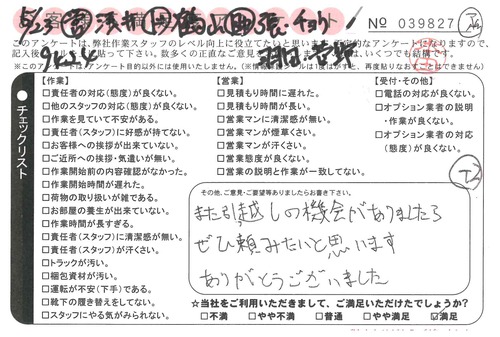 No 039827
このアンケートは、弊社作業スタッフのレベル向上に役立てたいと思います。
※このアンケートは、アンケート目的以外には使用いたしません。
チェックリスト
【作業】
□責任者の対応(態度)が良くない。
□他のスタッフの対応(態度)が良くない。
□作業を見ていて不安がある。
□責任者(スタッフ)に好感が持てない。
□お客様への挨拶が出来ていない。
□ご近所への挨拶・気遣いが無い。
□作業開始前の内容確認がなかった。
□作業開始時間が遅れた。
□荷物の取り扱いが雑である。
□お部屋の養生が出来ていない。
□作業時間が長すぎる。
□責任者(スタッフ)に清潔感が無い。
□責任者(スタッフ)が汗くさい。
□トラックが汚い。
□梱包資材が汚い。
□運転が不安(下手)である。
□靴下の履き替えをしてない。
□スタッフにやる気がみられない。
【営業】
□見積もり時間に遅れた。
□見積もり時間が長い。
□営業マンに清潔感が無い。
□営業マンが煙草くさい。
□営業マンが汗くさい。
□営業態度が良くない。
□営業の説明と作業が一致してない。
【受付・その他】
□電話の対応が良くない。
□オプション業者の説明・作業が良くない。
□オプション業者の対応(態度)が良くない。
その他、ご意見・ご要望等ありましたらお書き下さい。
また引越しの機会がありましたら
ぜひ頼みたいと思います
ありがとうございました
☆当社をご利用いただきまして、ご満足いただけたでしょうか?
□不満 □やや不満 □普通 □やや満足 ☑満足